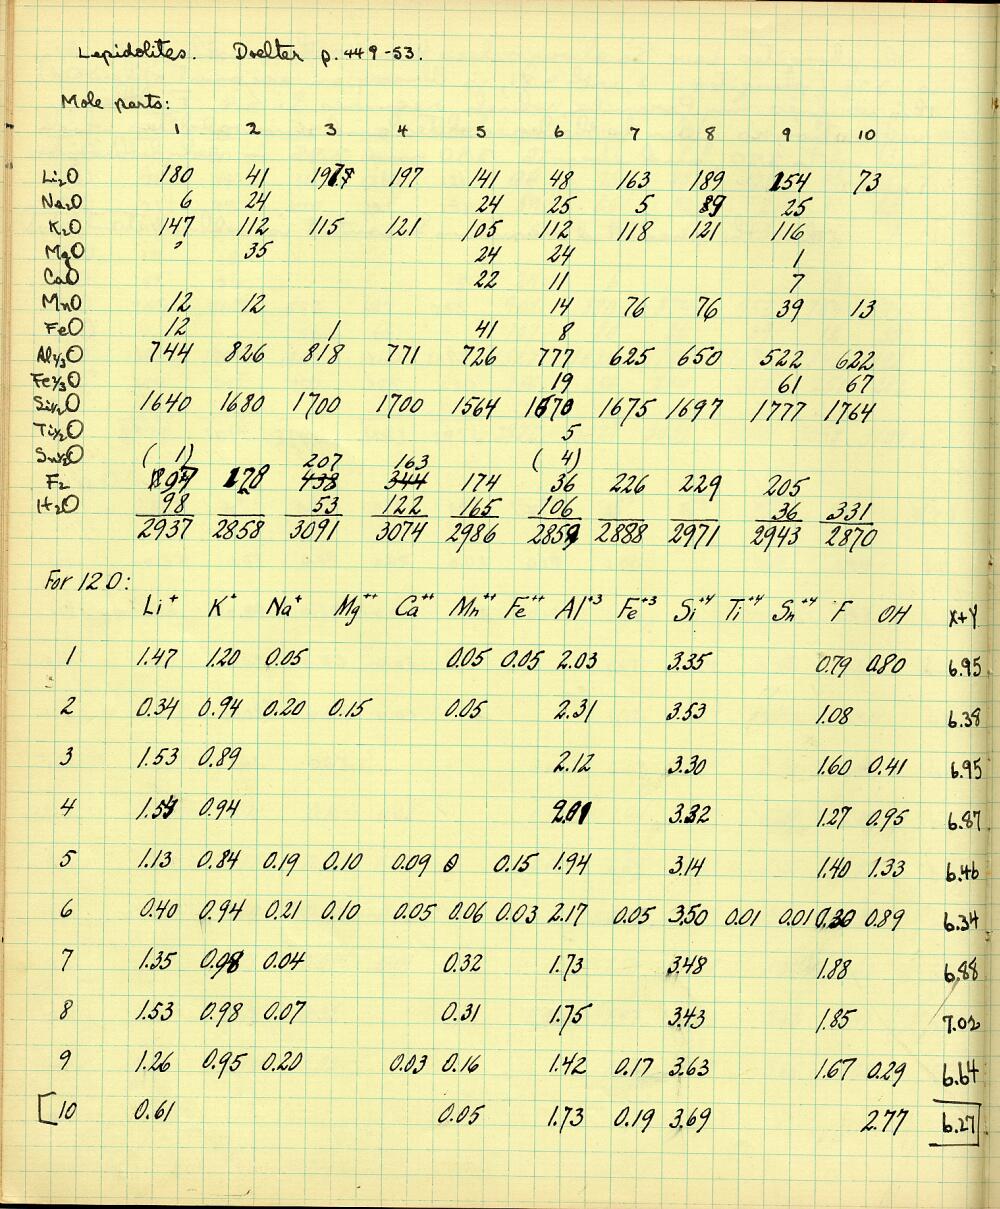 Lepidolites. Doelter p. 449-53.
Mole parts:
1 2 3 4 5 6 7 8 9 10
Li₂O 180 41 197 197 141 48 163 189 154 73
Na₂O 6 24 24 25 5 89 25
K₂O 147 112 115 121 105 112 118 121 116
MgO ? 35 24 24 1
CaO 22 11 7
MnO 12 12 14 76 76 39 13
FeO 12 1 41 8
Al⅔O 744 826 818 771 726 777 625 650 522 622
Fe⅔O 19 61 67
Si½O 1640 1680 1700 1700 1564 1670 1675 1697 1777 1764
Ti½O 5
Sn½O ( 1) 207 163 ( 4)
F₂ 97 178 438 344 174 36 226 229 205
H₂O 98 53 122 165 106 36 331
2937 2858 3091 3074 2986 2859 2888 2971 2943 2870
For 12 O:
Li⁺ K⁺ Na⁺ Mg⁺⁺ Ca⁺⁺ Mn⁺⁺ Fe⁺⁺ Al⁺³ Fe⁺³ Si⁺⁴ Ti⁺⁴ Sn⁺⁴ F OH X+Y
1 1.47 1.20 0.05 0.05 0.05 2.03 3.35 0.79 0.80 6.95
2 0.34 0.94 0.20 0.15 0.05 2.31 3.53 1.08 6.38
3 1.53 0.89 2.12 3.30 1.60 0.41 6.95
4 1.54 0.94 2.01 3.32 1.27 0.95 6.87
5 1.13 0.84 0.19 0.10 0.09 0 0.15 1.94 3.14 1.40 1.33 6.46
6 0.40 0.94 0.21 0.10 0.05 0.06 0.03 2.17 0.05 3.50 0.01 0.01 0.30 0.89 6.34
7 1.35 0.98 0.04 0.32 1.73 3.48 1.88 6.88
8 1.53 0.98 0.07 0.31 1.75 3.43 1.85 7.02
9 1.26 0.95 0.20 0.03 0.16 1.42 0.17 3.63 1.67 0.29 6.64
[10 0.61 0.05 1.73 0.19 3.69 2.77 6.27]